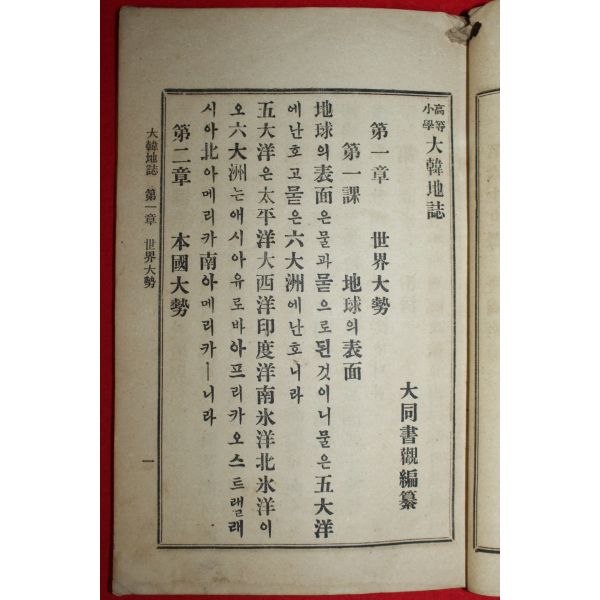 高等小學 大韓地誌
大同書觀編纂
第一章 世界大勢
第一課 地球의表面
地球의表面은물과뭍으로된것이니물은五大洋
에난호고뭍은六大洲에난호니라
五大洋은太平洋大西洋印度洋南氷洋北氷洋이
오六大洲는애시아유로바아프리카오스트랠래
시아北아메리카南아메리카ㅣ니라
第二章 本國大勢
大韓地誌 第一章 世界大勢 一